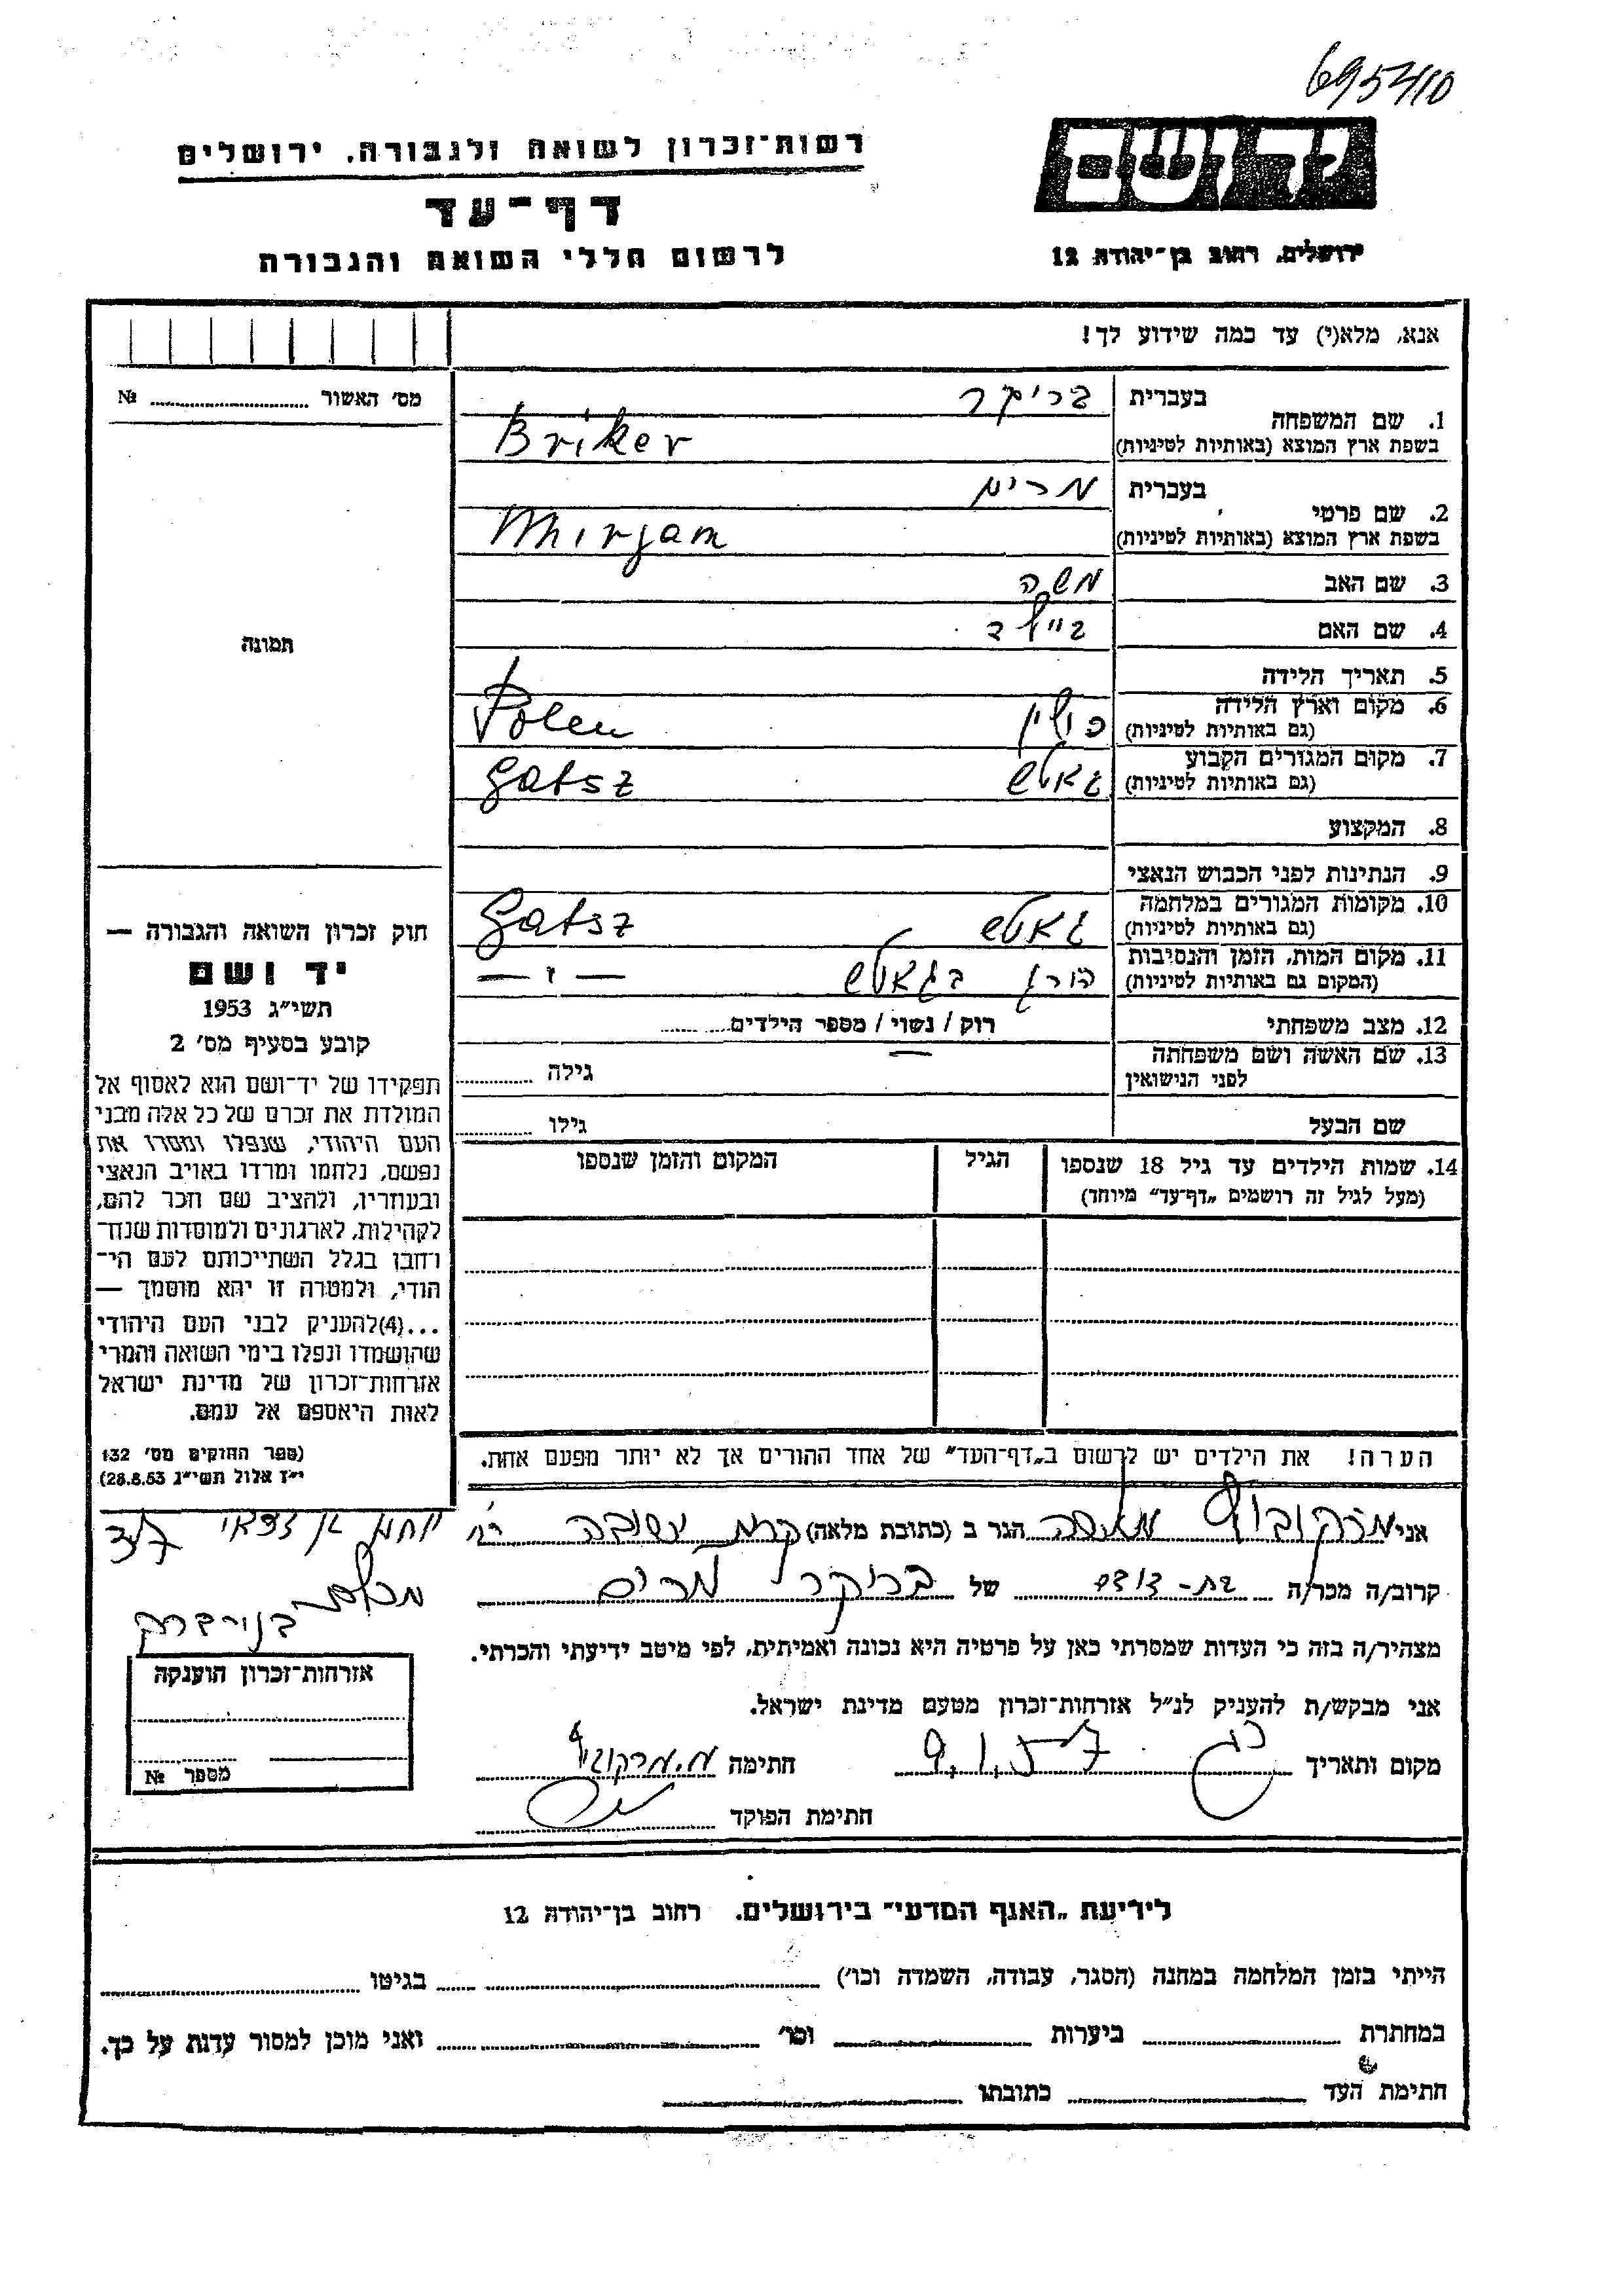 695410
יד ושם
ירושלים, רחוב בן־יהודה 12
רשות־זכרון לשואה ולגבורה, ירושלים
דף־עד
לרשום חללי השואה והגבורה
אנא, מלא(י) עד כמה שידוע לך!
מס' האשור № ........
1. שם המשפחה בעברית בריקר
בשפת ארץ המוצא (באותיות לטיניות) Briker
2. שם פרטי בעברית מרים
בשפת ארץ המוצא (באותיות לטיניות) Mirjam
3. שם האב משה
4. שם האם
5. תאריך הלידה
6. מקום וארץ הלידה (גם באותיות לטיניות) פולין Polen
7. מקום המגורים הקבוע (גם באותיות לטיניות) גאלש Gatsz
8. המקצוע
9. הנתינות לפני הכבוש הנאצי
10. מקומות המגורים במלחמה (גם באותיות לטיניות) גאלש Gatsz
11. מקום המות, הזמן והנסיבות (המקום גם באותיות לטיניות) הורג בגאלש — " —
12. מצב משפחתי רוק / נשוי / מספר הילדים ........
13. שם האשה ושם משפחתה לפני הנישואין גילה ........
שם הבעל גילו ........
14. שמות הילדים עד גיל 18 שנספו הגיל המקום והזמן שנספו
(מעל לגיל זה רושמים „דף־עד" מיוחד)
תמונה
חוק זכרון השואה והגבורה —
יד ושם
תשי"ג 1953
קובע בסעיף מס' 2
תפקידו של יד־ושם הוא לאסוף אל
המולדת את זכרם של כל אלה מבני
העם היהודי, שנפלו ומסרו את
נפשם, נלחמו ומרדו באויב הנאצי
ובעוזריו, ולהציב שם וזכר להם,
לקהילות, לארגונים ולמוסדות שנח־
רחבו בגלל השתייכותם לעם הי־
הודי, ולמטרה זו יהא מוסמך —
...(4)להעניק לבני העם היהודי
שהושמדו ונפלו בימי השואה והמרי
אזרחות־זכרון של מדינת ישראל
לאות היאספם אל עמם.
(ספר החוקים מס' 132
י"ז אלול תשי"ג 28.8.53)
הערה! את הילדים יש לרשום ב„דף־העד" של אחד ההורים אך לא יותר מפעם אחת.
אני מרקוביץ הגר ב (כתובת מלאה)
קרוב/ה מכר/ה בת-דודה של בריקר מרים
מצהיר/ה בזה כי העדות שמסרתי כאן על פרטיה היא נכונה ואמיתית, לפי מיטב ידיעתי והכרתי.
אני מבקש/ת להעניק לנ"ל אזרחות־זכרון מטעם מדינת ישראל.
מקום ותאריך 9.1.57 חתימה מ.מרקוביץ
חתימת הפוקד
אזרחות־זכרון הוענקה
מספר №
לידיעת „האגף המדעי" בירושלים. רחוב בן־יהודה 12
הייתי בזמן המלחמה במחנה (הסגר, עבודה, השמדה וכו') ........ בגיטו ........
במחתרת ........ ביערות ........ וכו' ........ ואני מוכן למסור עדות על כך.
חתימת העד ........ כתובתו ........